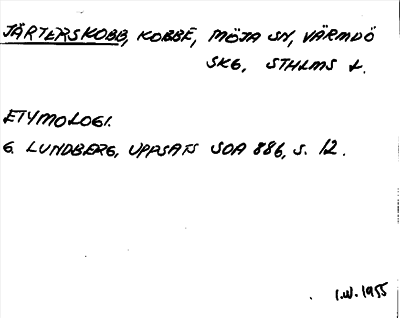 JÄRTERSKOBB, KOBBE, MÖJA SN, VÄRMDÖ
SKG, STHLMS L.
ETYMOLOGI.
G. LUNDBERG, UPPSATS SOA 886, S. 12.
I.W. 1955